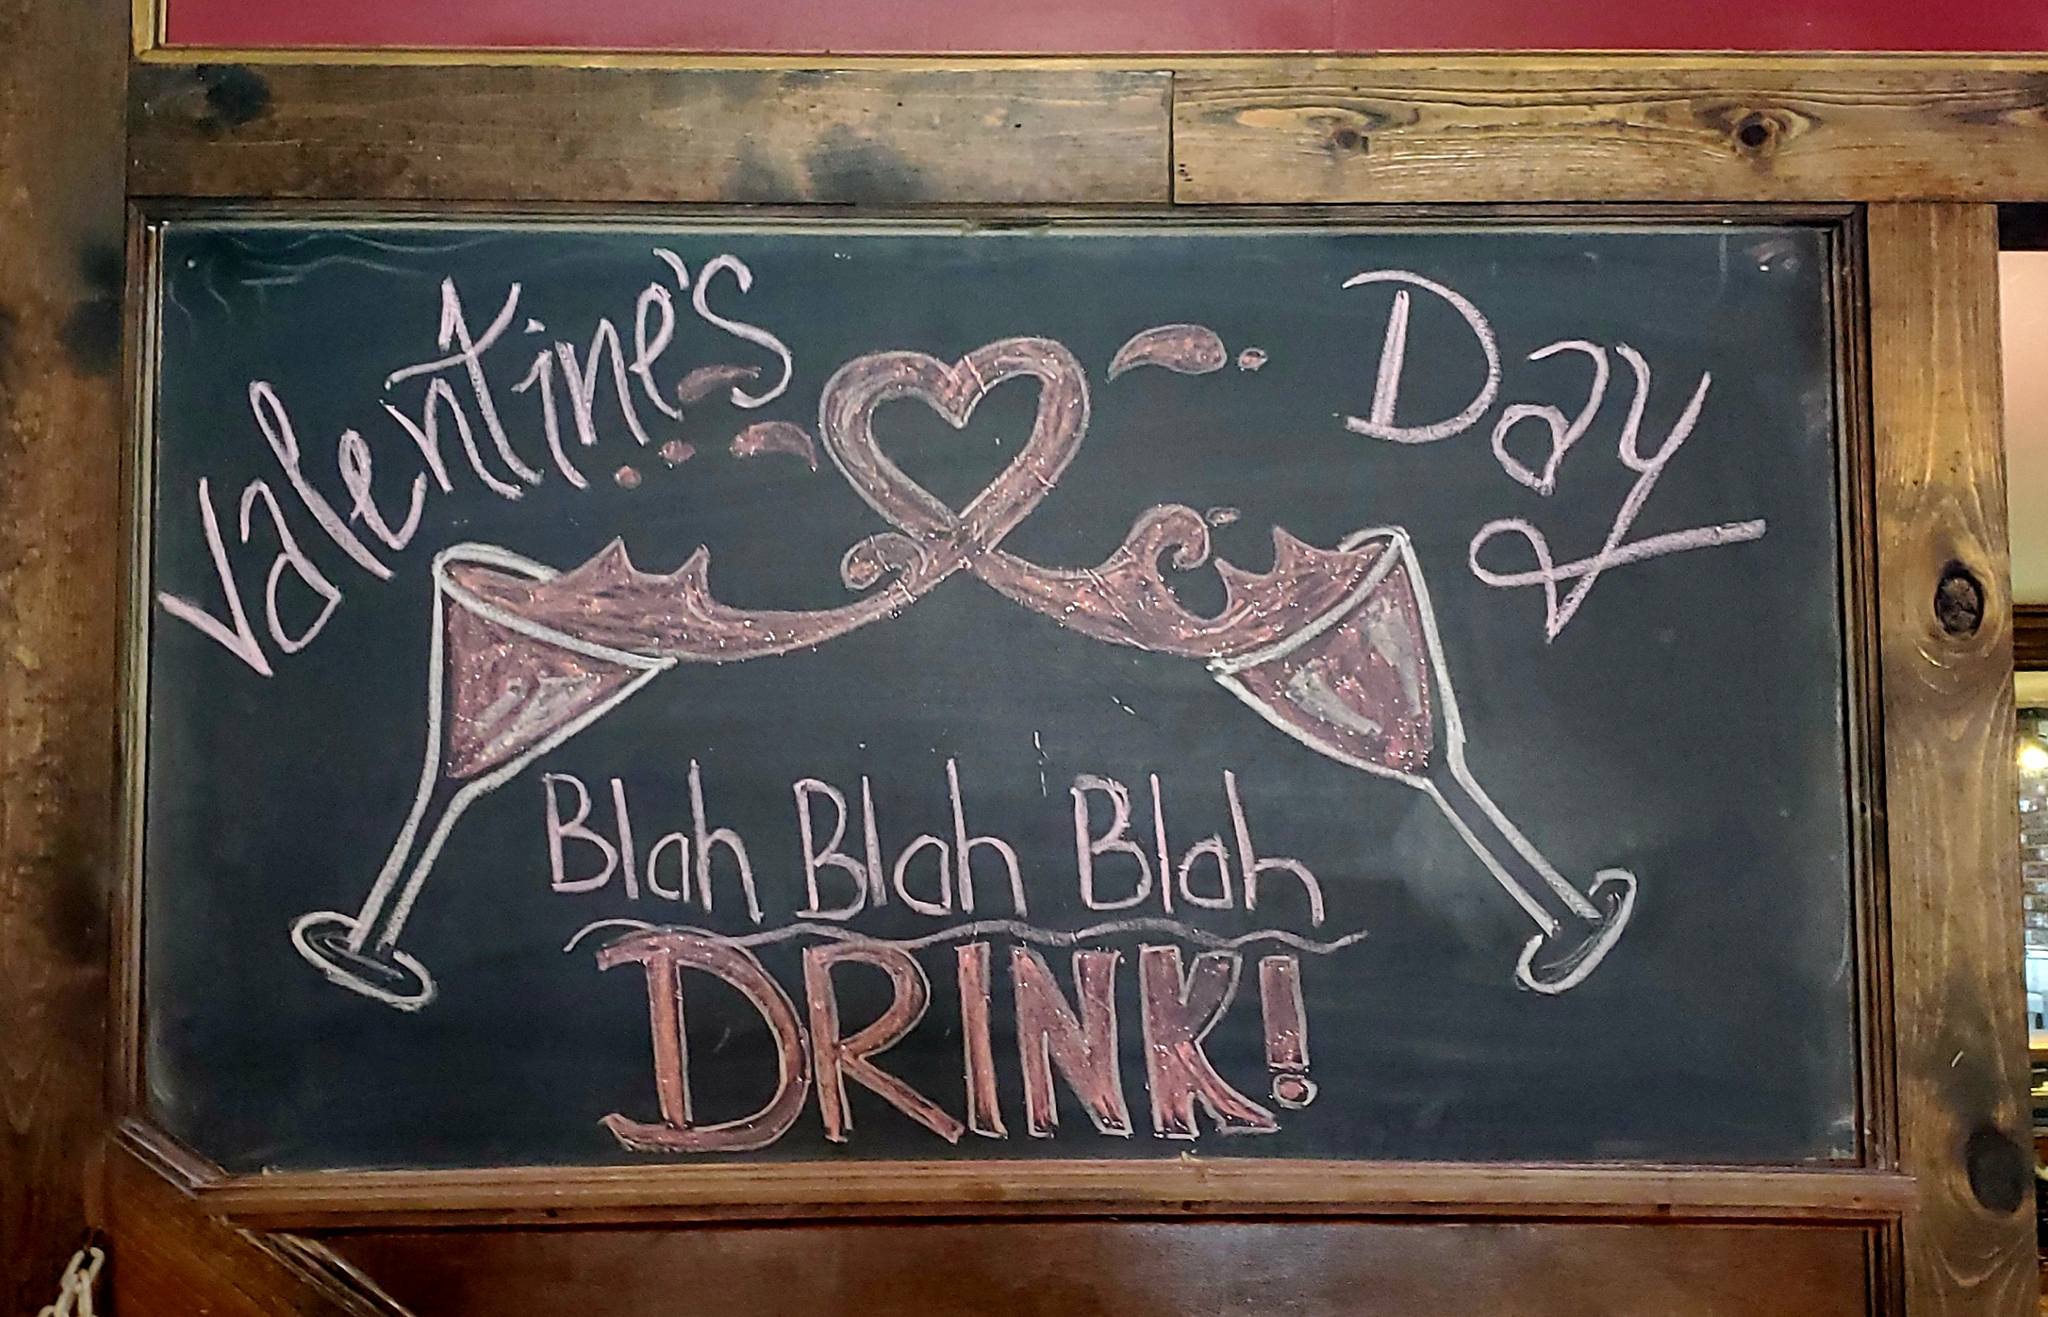 Valentine's Day
Blah Blah Blah
DRINK!